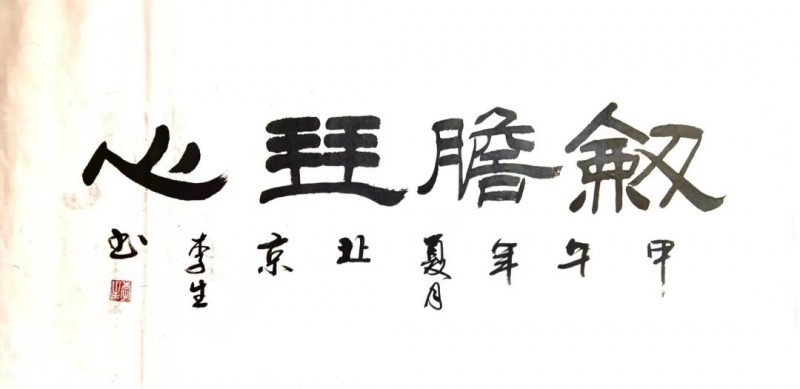 劒膽琴心
甲午年夏月北京李生书